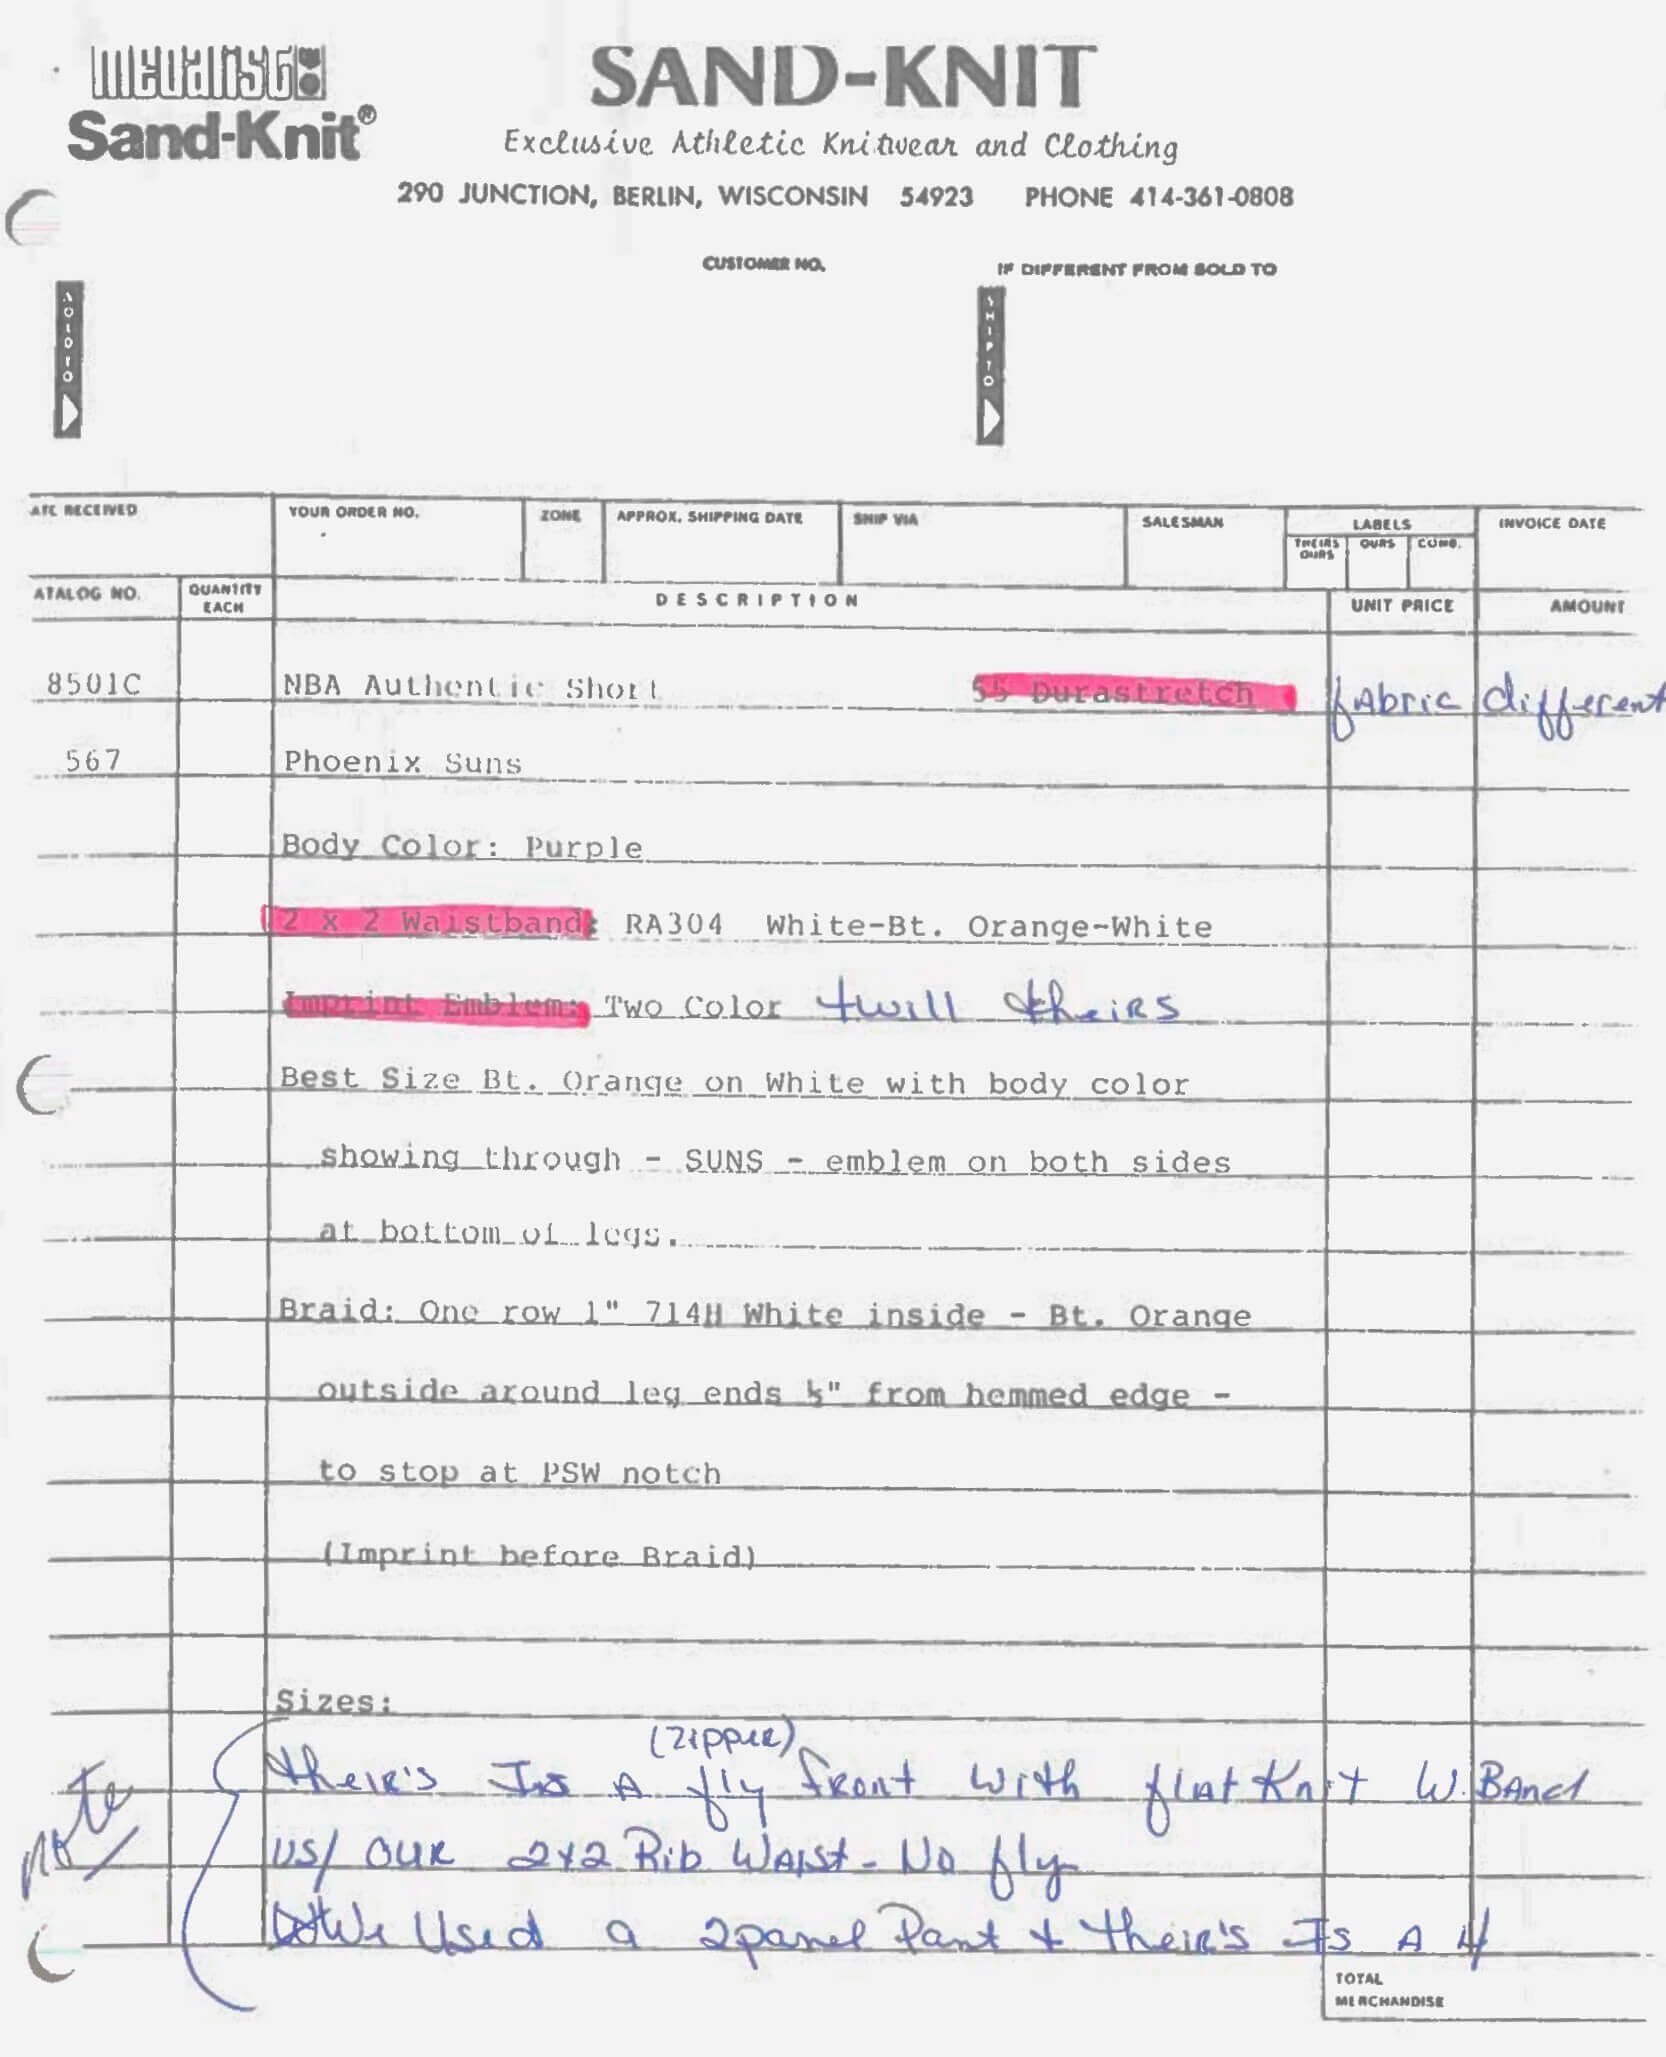 medalist
Sand-Knit®
SAND-KNIT
Exclusive Athletic Knitwear and Clothing
290 JUNCTION, BERLIN, WISCONSIN 54923 PHONE 414-361-0808
CUSTOMER NO.
IF DIFFERENT FROM SOLD TO
SOLD TO
SHIP TO
ATE RECEIVED YOUR ORDER NO. ZONE APPROX. SHIPPING DATE SHIP VIA SALESMAN LABELS INVOICE DATE
THEIRS OURS OURS COMB.
ATALOG NO. QUANTITY EACH DESCRIPTION UNIT PRICE AMOUNT
8501C NBA Authentic Short 55 Durastretch fabric different
567 Phoenix Suns
Body Color: Purple
2 x 2 Waistband: RA304 White-Bt. Orange-White
Imprint Emblem: Two Color twill theirs
Best Size Bt. Orange on White with body color
showing through - SUNS - emblem on both sides
at bottom of legs.
Braid: One row 1" 714H White inside - Bt. Orange
outside around leg ends ½" from hemmed edge -
to stop at PSW notch
(Imprint before Braid)
Sizes:
(Zipper)
note
their's Is A fly front with flat Knit W.Band
vs/ our 2x2 Rib Waist - No fly
We Used a 2panel Pant + their's Is A 4
TOTAL
MERCHANDISE